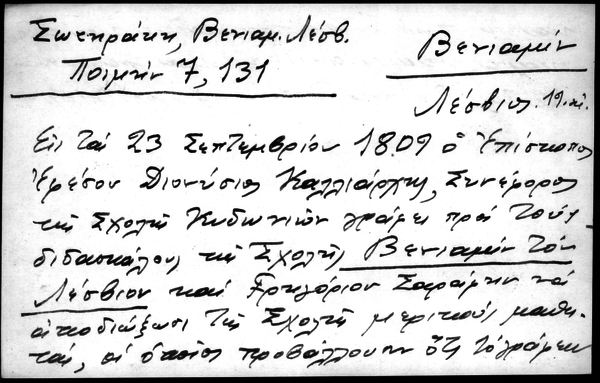 Σωκηράκη, Βενιαμ. Λέσβ.
Ποιμήν 7, 131
Βενιαμίν
Λέσβιος. 19. αι.
Εις τας 23 Σεπτεμβρίου 1809 ο Επίσκοπος
Εφέσου Διονύσιος Καλλιάρχης, Συνέφορος
της Σχολής Κυδωνιών γράφει προς τους
διδασκάλους της Σχολής Βενιαμίν τον
Λέσβιον και Γρηγόριον Σαράφην να
αποδιώξωσι της Σχολής μερικούς μαθη-
τας, οι οποίοι προβάλλουν ότι